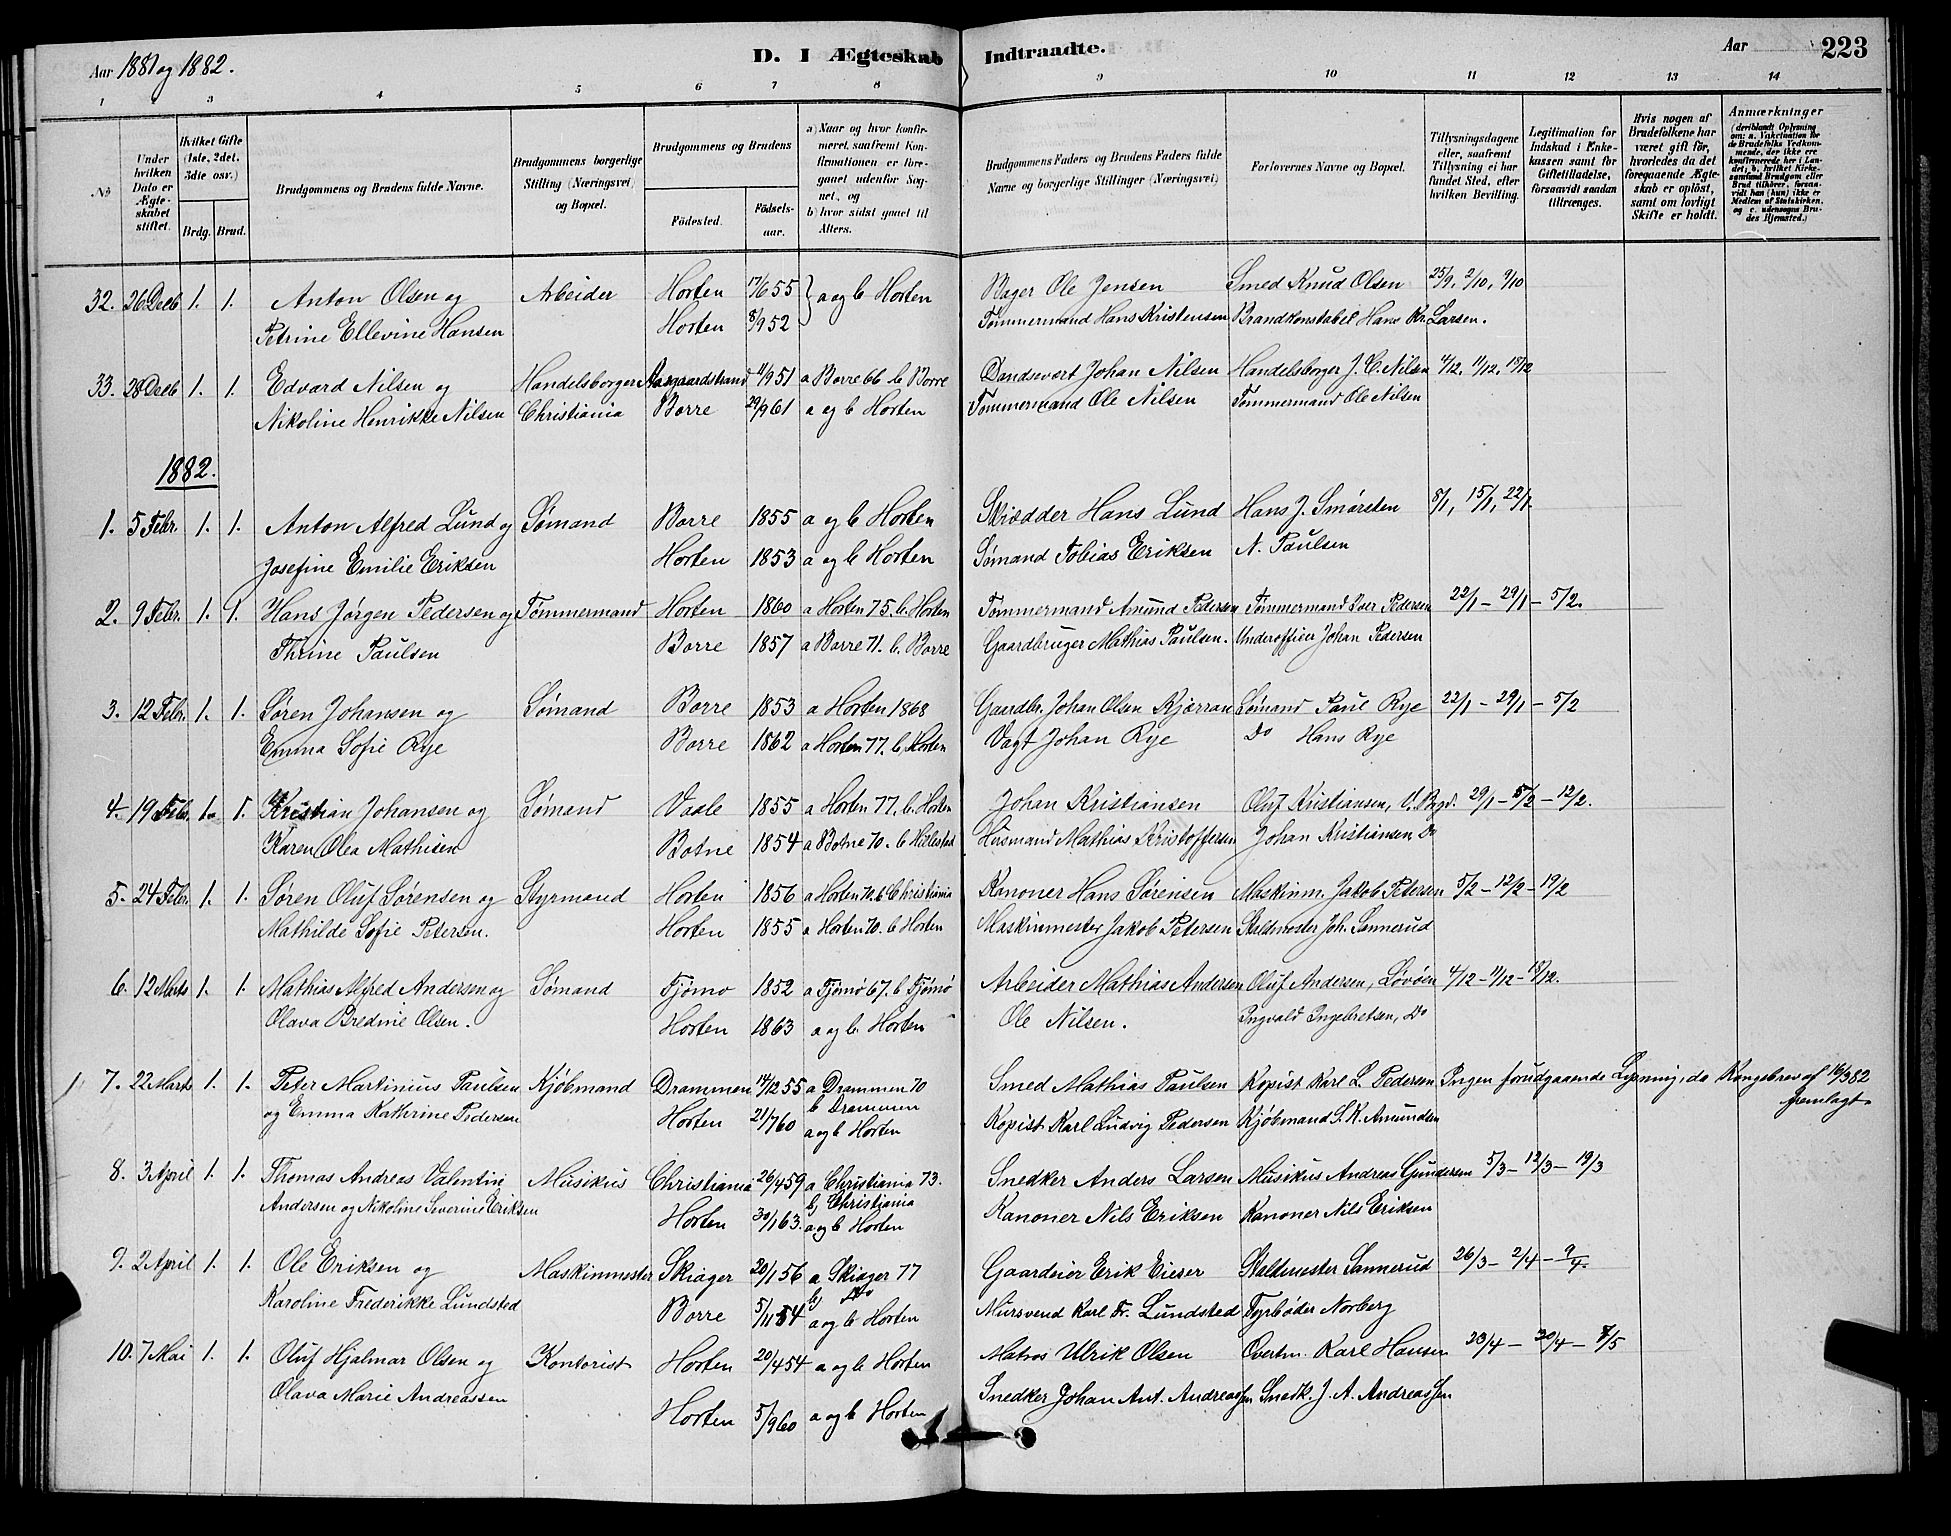 Aar 1881 og 1882.
D. I Ægteskab Indtraadte.
Aar
223
1 2 3 4 5 6 7 8 9 10 11 12 13 14
No
Under hvilken Dato er Ægteskabet stiftet.
Hvilket Gifte (1ste, 2det, 3die osv.)
Brdg. Brud.
Brudgommens og Brudens fulde Navne.
Brudgommens borgerlige Stilling (Næringsvei) og Bopæl.
Brudgommens og Brudens
Födested.
Födsels-aar.
a) Naar og hvor konfirmeret, saafremt Konfirmationen er foregaaet udenfor Sognet, og
b) hvor sidst gaaet til Alters.
Brudgommens Faders og Brudens Faders fulde Navne og borgerlige Stillinger (Næringsvei)
Forlovernes Navne og Bopæl.
Tillysningsdagene eller, saafremt Tillysning ei har fundet Sted, efter hvilken Bevilling.
Legitimation for Indskud i Enkekassen samt for Giftetilladelse, forsaavidt saadan tiltrænges.
Hvis nogen af Brudefolkene har været gift før, hvorledes da det foregaaende Ægteskab er oplöst, samt om lovligt Skifte er holdt.
Anmærkninger
(deriblandt Oplysning om: a. Vakcination for de Brudefolks Vedkommende, der ikke ere konfirmerede her i Landet; b. hvilket Kirkesamfund Brudgom eller Brud tilhörer, forsaavidt han (hun) ikke er Medlem af Statskirken, og c. udensogns Brudes Hjemsted.)
32. 26 Decb 1. 1. Anton Olsen og Arbeider Horten 17/6 55 } a og b Horten Bager Ole Jensen Smed Knud Olsen 25/9, 2/10, 9/10
Petrine Ellevine Hansen Horten 8/9 52 Tømmermand Hans Kristensen Brandkonstabel Hans Kr. Larsen.
33. 28 Decb 1. 1. Edvard Nilsen og Handelsborger Aasgaardstrand 11/9 51 a Borre 66 b Borre Dandsevert Johan Nilsen Handelsborger J. C. Nilsen 4/12. 11/12. 18/12
Nikoline Henrikke Nilsen Christiania Borre 29/9 61 a og b Horten Tømmermand Ole Nilsen Tømmermand Ole Nilsen
1882.
1. 5 Febr. 1. 1. Anton Alfred Lund og Sømand Borre 1855 a og b Horten Skrædder Hans Lund Hans J. Smørsten 8/1, 15/1, 22/1.
Josefine Emilie Eriksen Horten 1853 a og b Horten Sømand Tobias Eriksen N. Paulsen
2. 9 Febr. 1. 1. Hans Jørgen Pedersen og Tømmermand Horten 1860 a Horten 75. b. Horten Tømmermand Amund Pedersen Tømmermand Iver Pedersen 22/1 - 29/1 - 5/2.
Thrine Paulsen Borre 1857 a Borre 71. b. Borre Gaardbruger Mathias Paulsen. Underofficer Johan Pedersen
3. 12 Febr. 1. 1. Søren Johansen og Sømand Borre 1853 a Horten 1868 Gaardbr. Johan Olsen Kjærran Sømand Paul Rye 22/1 - 29/1 - 5/2
Emma Sofie Rye Borre 1862 a Horten 77. b, Horten Vagt Johan Rye Do Hans Rye
4. 19 Febr. 1. 1. Kristian Johansen og Sømand Vaale 1855 a Horten 77. b. Horten Johan Kristiansen Oluf Kristiansen, 29/1 - 5/2 - 12/2.
Karen Olea Mathisen Botne 1854 a Botne 70. b Hillestad Husmand Mathias Kristoffersen Johan Kristiansen Do
5. 24 Febr. 1. 1. Søren Oluf Sørensen og Styrmand Horten 1856 a Horten 70. b Christiania Kanoner Hans Sørensen Maskinm. Jakob Petersen 5/2 - 12/2 - 19/2
Mathilde Sofie Petersen. Horten 1855 a Horten 70. b Horten Maskinmester Jakob Petersen Staldmester Joh. Sannerud
6. 12 Marts 1. 1. Mathias Alfred Andersen og Sømand Tjømø 1852 a Tjømø 67. b Tjømø Arbeider Mathias Andersen Oluf Andersen, Løvøen 4/12 - 11/12 - 18/12.
Olava Bredine Olsen. Horten 1863 a og b. Horten Ole Nilsen. Ingvald Ingebretsen, Do
7. 22 Marts 1. 1. Peter Martinius Paulsen Kjøbmand Drammen 14/12 55 a Drammen 70 Smed Mathias Paulsen Kopist Karl L. Pedersen Ingen forudgaaende Lysning, da Kongebrev af 16/3 82
b Drammen fremlagt.
og Emma Kathrine Pedersen Horten 21/7 60 a og b Horten Kopist Karl Ludvig Pedersen Kjøbmand S. K. Amundsen
8. 3 April 1. 1. Thomas Andreas Valentin Musikus Christiania 26/4 59 a Christiania 73. Snedker Anders Larsen Musikus Andreas Gundersen 5/3 - 12/3 - 19/3
b, Christiania
Andersen og Nikoline Severine Eriksen Horten 30/1 63. a og b Horten Kanoner Nils Eriksen Kanoner Nils Eriksen
9. 2 April 1. 1. Ole Eriksen og Maskinmester Skiager 20/1 56 a Skiager 77 Gaardeier Erik Staldmester Sannerud 26/3 - 2/4 - 9/4.
b) Do
Karoline Frederikke Lundsted Borre 5/11 54 a og b Horten Mursvend Karl Fr. Lundsted Fyrbøder Norberg
10. 7 Mai 1. 1. Oluf Hjalmar Olsen og Kontorist Horten 20/4 54 a og b Horten Matros Ulrik Olsen Overtm. Karl Hansen 23/4 - 30/4 - 7/5
Olava Marie Andreassen Horten 5/9 60 a og b Horten Snedker Johan Ant. Andreassen Snedk. J. A. Andreassen